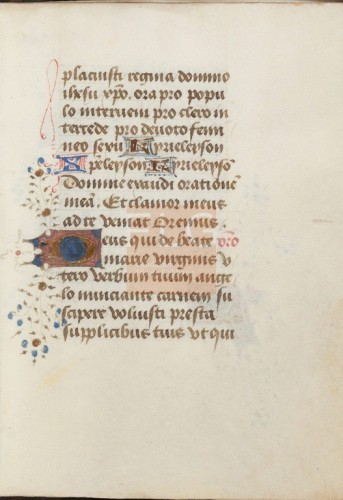 placuisti regina domino
ihesu xpo. ora pro popu
lo interueni pro clero in
tercede pro deuoto femi
neo sexu Kyrieleyson
Xpeleyson Kyrieleyson
Domine exaudi oratione
mea. Et clamor meus
ad te veniat Oremus.
Deus qui de beate
marie virginis v
tero verbum tuum ange
lo nunciante carnem su
scipere voluisti presta
supplicibus tuis vt qui